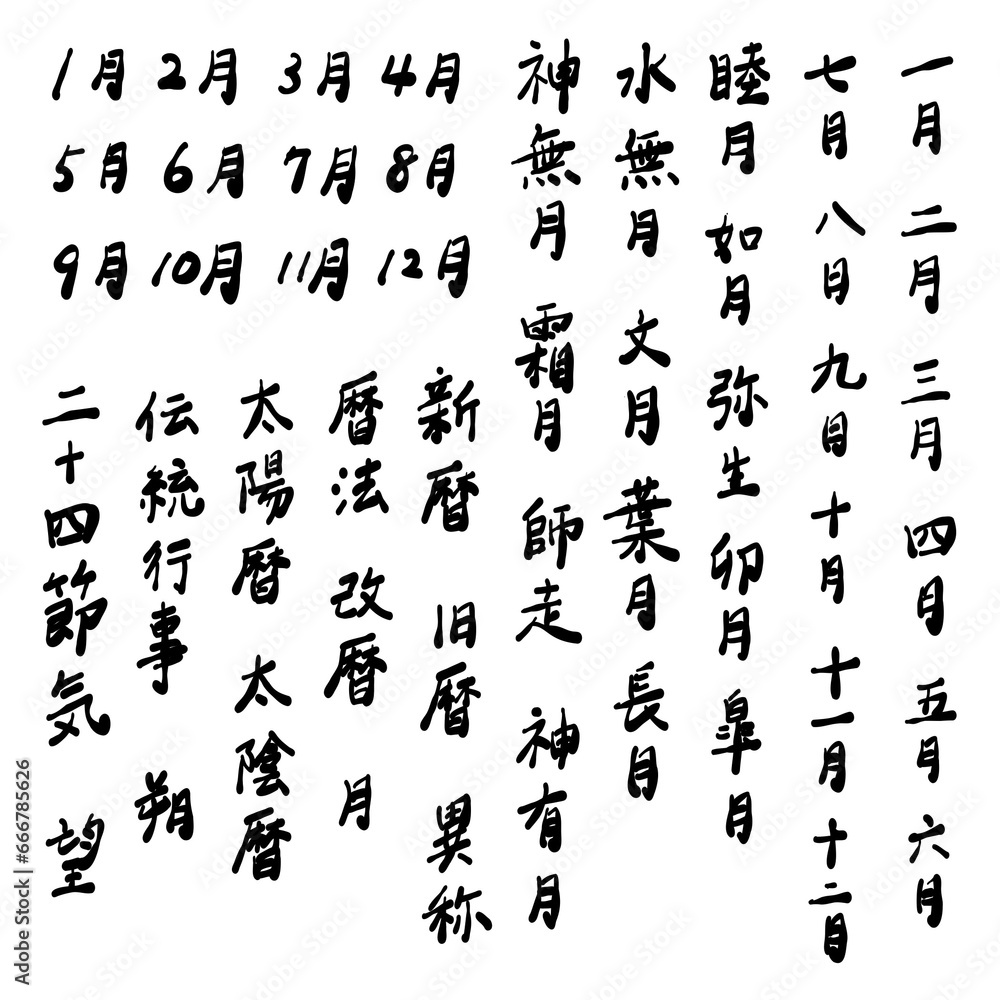 一月 二月 三月 四月 五月 六月
七月 八月 九月 十月 十一月 十二月
睦月 如月 弥生 卯月 皐月
水無月 文月 葉月 長月
神無月 霜月 師走 神有月
1月 2月 3月 4月
5月 6月 7月 8月
9月 10月 11月 12月
新暦 旧暦 異称
暦法 改暦 月
太陽暦 太陰暦
伝統行事 朔
二十四節気 望
Adobe Stock | #666785626